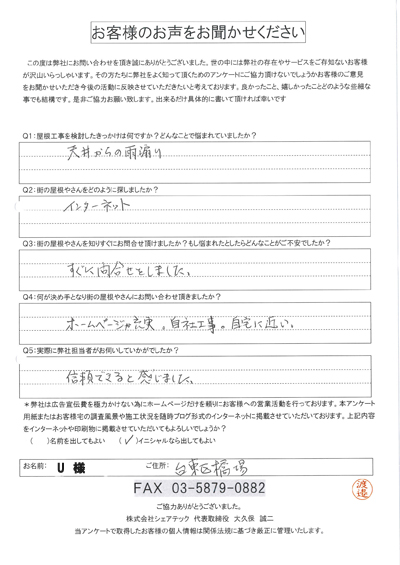 お客様のお声をお聞かせください
この度は弊社にお問い合わせを頂き誠にありがとうございました。世の中には弊社の存在やサービスをご存知ないお客様
が沢山いらっしゃいます。その方たちに弊社をよく知って頂くためのアンケートにご協力頂けないでしょうかお客様のご意見
をお聞かせいただき今後の活動に反映させていただきたいと考えております。良かったこと、嬉しかったことどのような些細な
事でも結構です。是非ご協力お願い致します。出来るだけ具体的に書いて頂ければ幸いです
Q1:屋根工事を検討したきっかけは何ですか？どんなことで悩まれていましたか？
天井からの雨漏り
Q2:街の屋根やさんをどのように探しましたか？
インターネット
Q3:街の屋根やさんを知りすぐにお問合せ頂けましたか？もし悩まれたとしたらどんなことがご不安でしたか？
すぐに問合せをしました。
Q4:何が決め手となり街の屋根やさんにお問い合わせ頂きましたか？
ホームページが充実。自社工事。自宅に近い。
Q5:実際に弊社担当者がお伺いしていかがでしたか？
信頼できると感じました。
＊弊社は広告宣伝費を極力かけない為にホームページだけを頼りにお客様への営業活動を行っております。本アンケート
用紙またはお客様宅の調査風景や施工状況を随時ブログ形式のインターネットに掲載させていただいております。上記内容
をインターネットや印刷物に掲載させていただいてもよろしいでしょうか？
（　）名前を出してもよい　（✓）イニシャルなら出してもよい
お名前: U 様　ご住所: 台東区橋場
FAX 03-5879-0882
渡邉
ご協力ありがとうございました。
株式会社シェアテック 代表取締役 大久保 誠二
当アンケートで取得したお客様の個人情報は関係法規に基づき厳正に管理いたします。